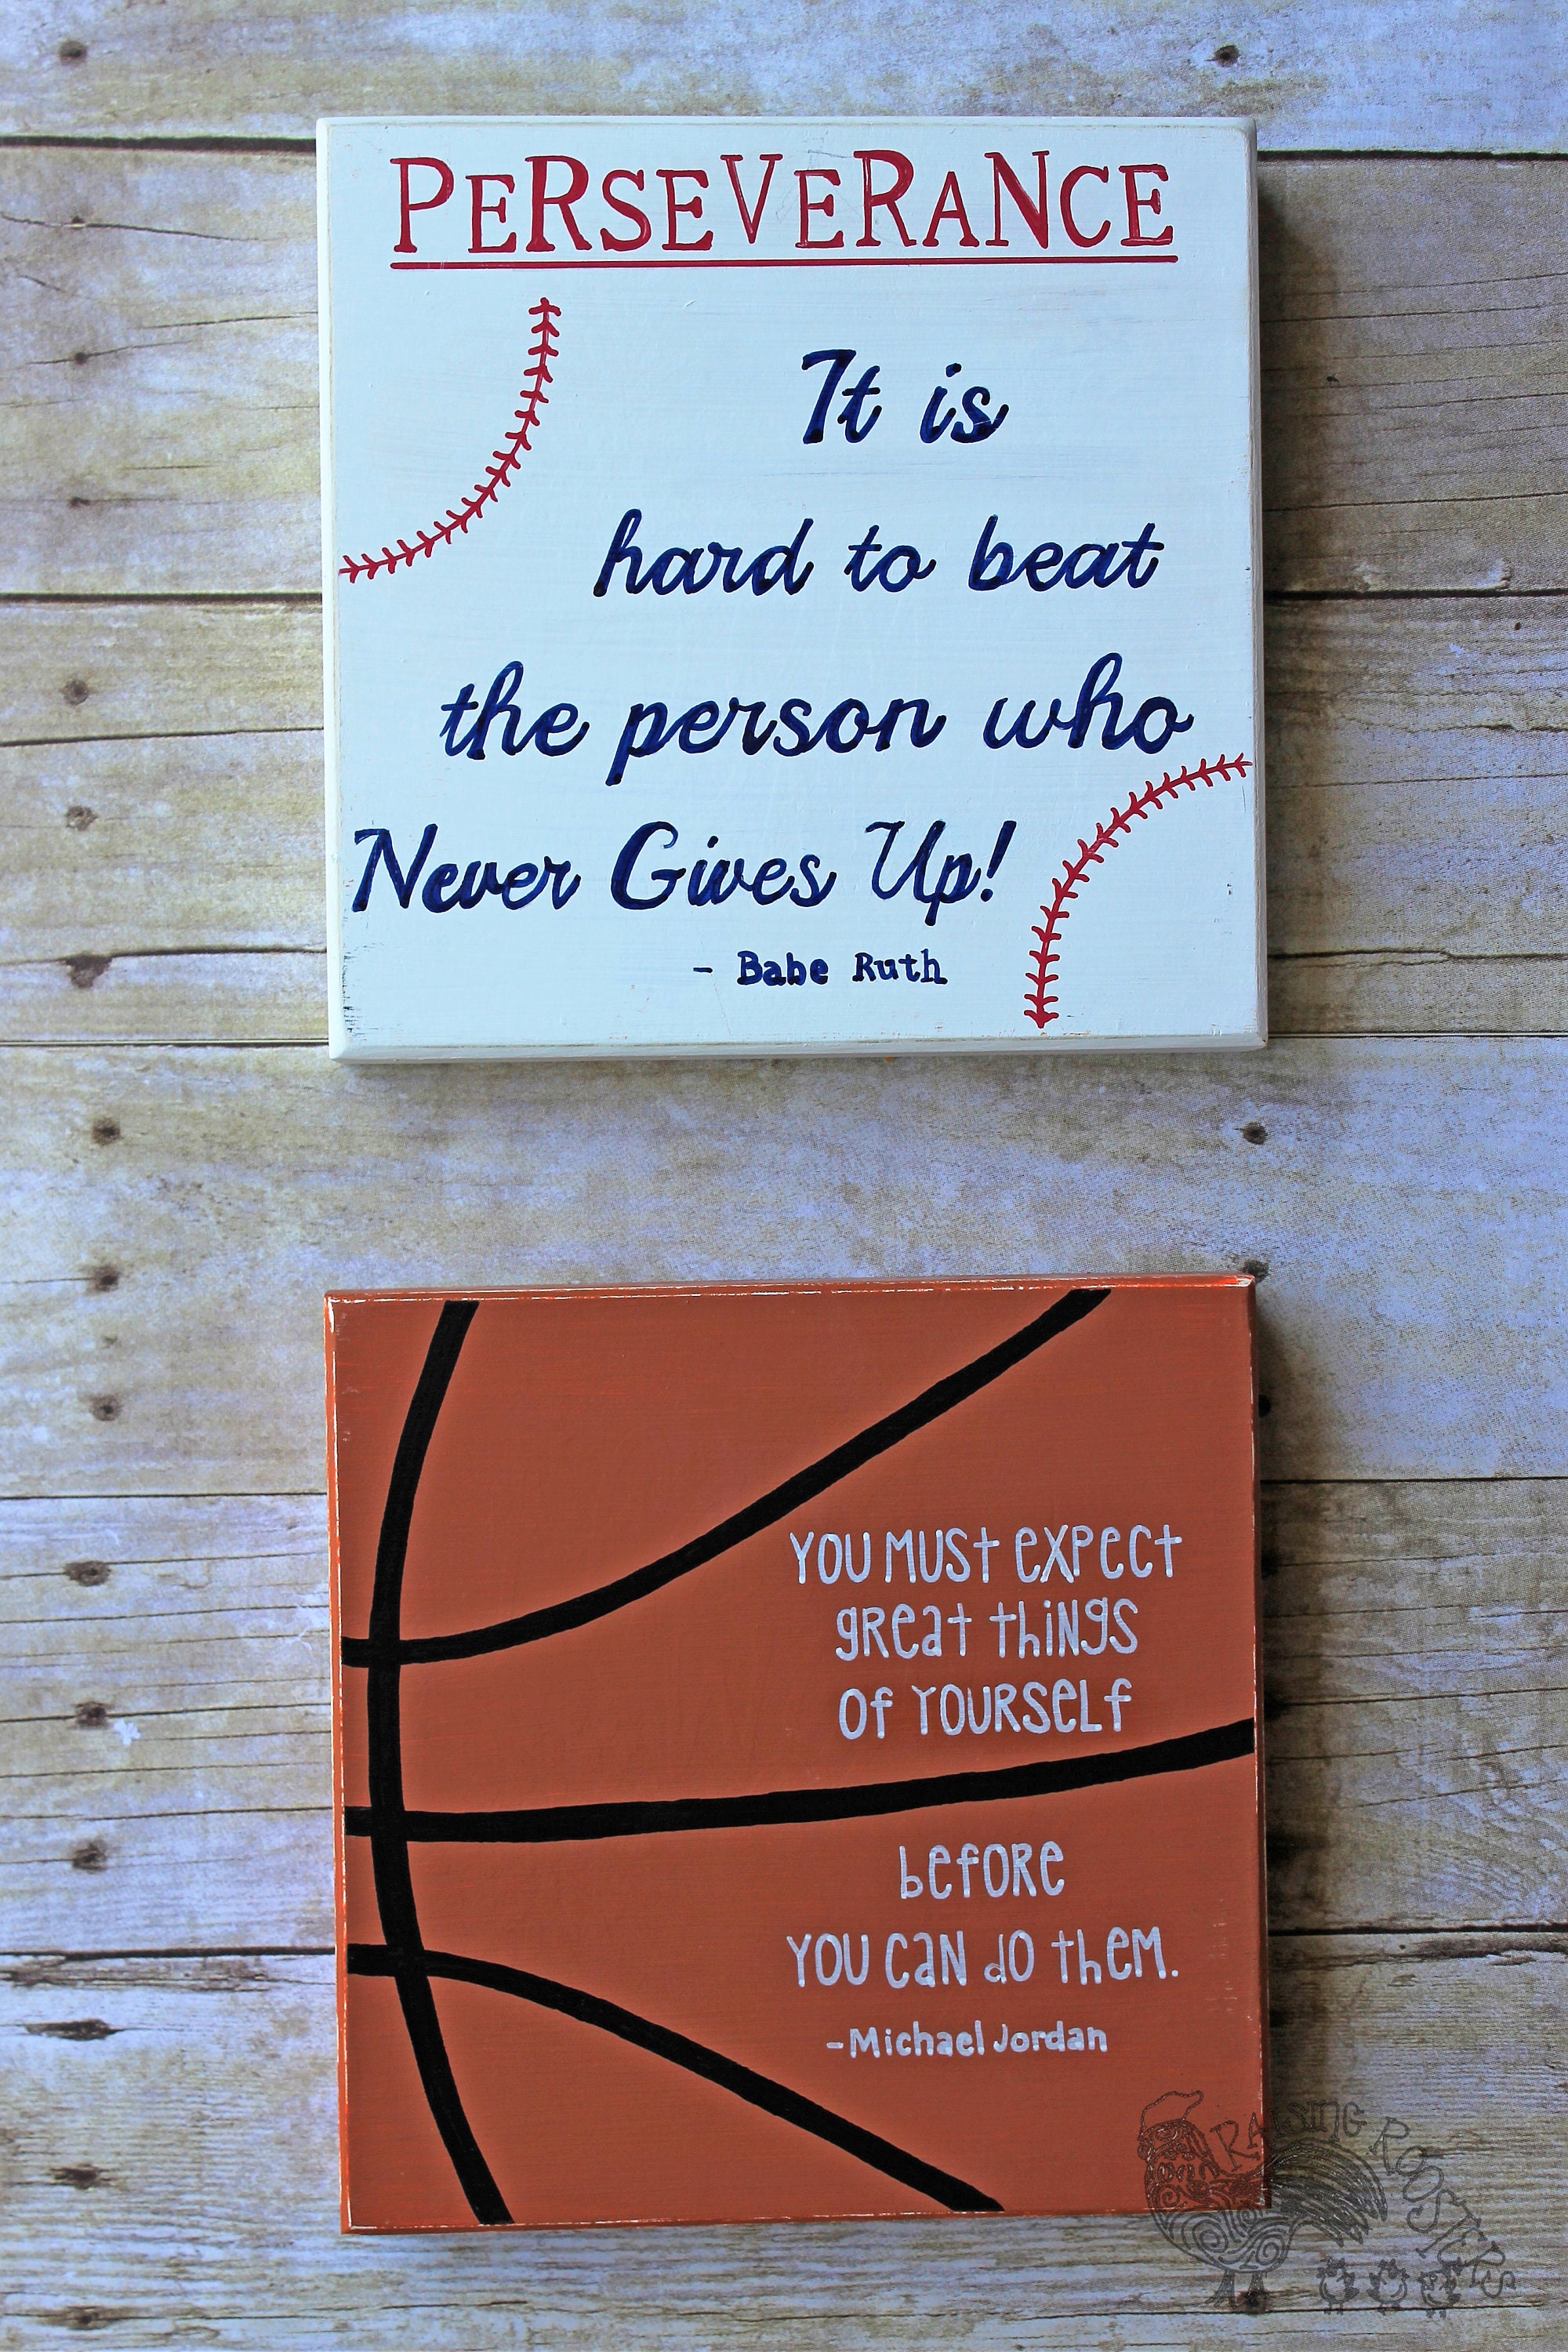 PERSEVERANCE
It is
hard to beat
the person who
Never Gives Up!
- Babe Ruth
YOU MUSt eXPeCt
gReat thiNgS
Of YOURSeLf
befORe
YOU CaN dO theM.
-Michael Jordan
RAISING ROOSTERS